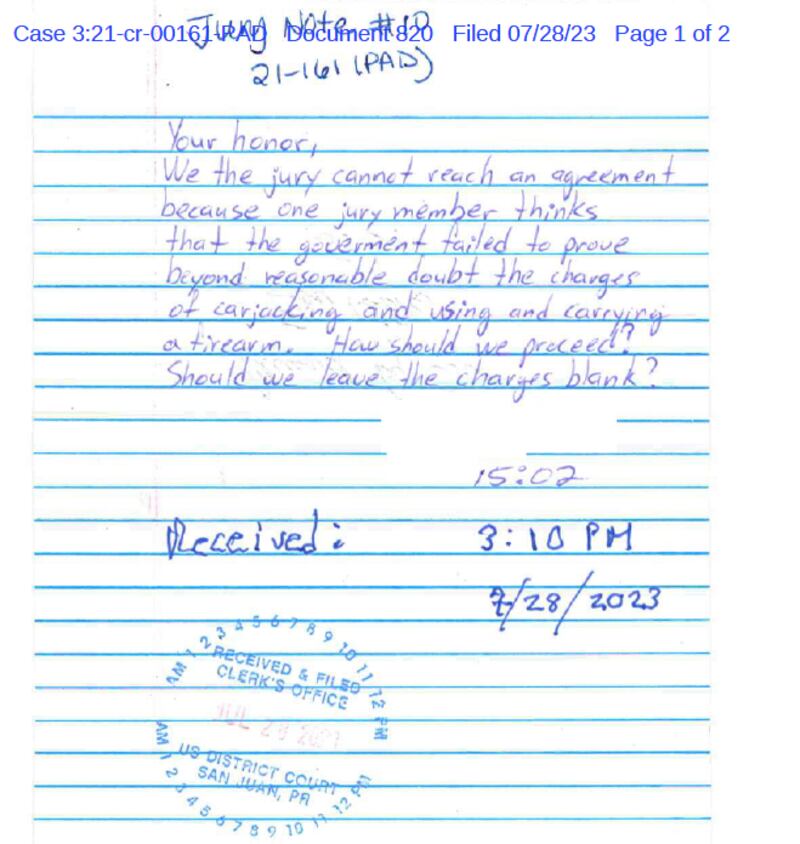 Jury Note #10
Case 3:21-cr-00161-PAD Document 820 Filed 07/28/23 Page 1 of 2
21-161 (PAD)
Your honor,
We the jury cannot reach an agreement
because one jury member thinks
that the goverment failed to prove
beyond reasonable doubt the charges
of carjacking and using and carrying
a firearm. How should we proceed?
Should we leave the charges blank?
15:02
Received: 3:10 PM
7/28/2023
AM 1 2 3 4 5 6 7 8 9 10 11 12 PM
RECEIVED & FILED
CLERK'S OFFICE
JUL 28
US DISTRICT COURT
SAN JUAN, PR
AM 1 2 3 4 5 6 7 8 9 10 11 12 PM